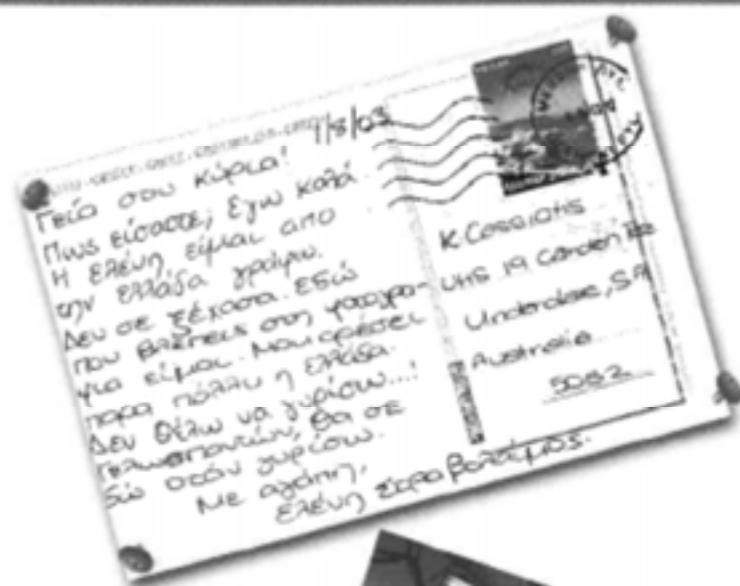 1/8/03
Γεία σου κύρια!
Πως είσαστε; Εγω καλά.
Η Ελένη είμαι απο
την Ελλάδα γράφω.
Δεν σε ξέχασα. Εδώ
που βλέπεις στη φωτογρα-
φια είμαι. Μου αρέσει
παρα πόλλυ η Ελλάδα.
Δεν θέλω να γυρίσω...!
θα σε
δώ οταν γυρίσω.
Με αγάπη,
Ελένη
K Cossiotis
19
Underdale, SA
Australia